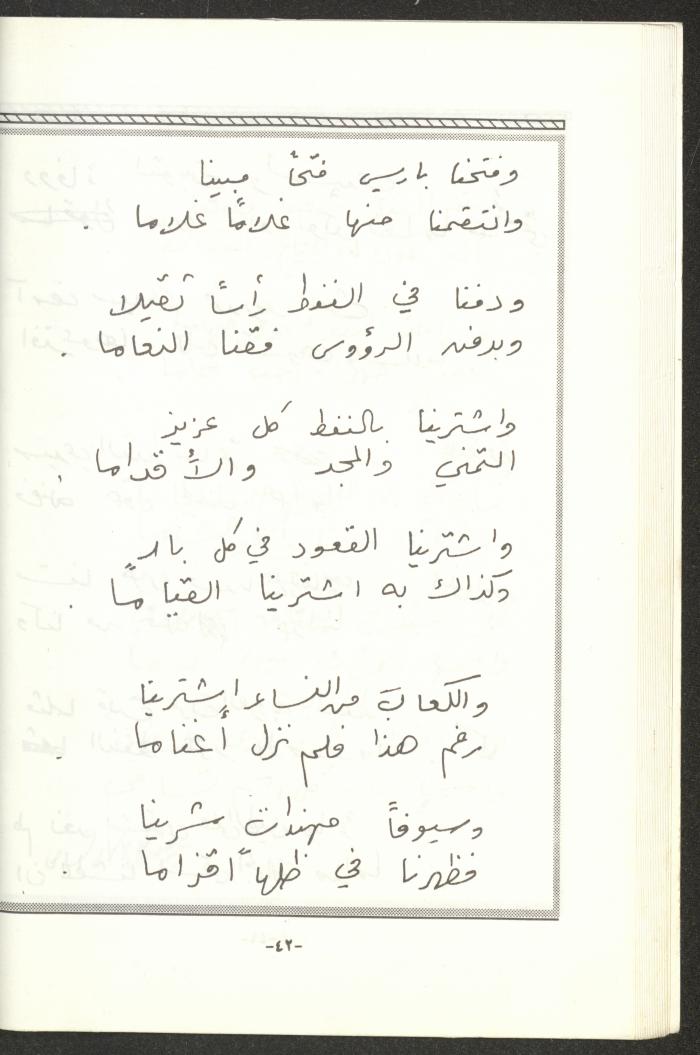 وفتحنا باريس فتحًا مبينا
وانتقمنا منها غلامًا غلاما .
ودفنا في النفط رأسًا ثقيلا
وبدفن الرؤوس فقنا النعاما .
واشترينا بالنفط كل عزيز
التمني والمجد والأقداما .
واشترينا القعود في كل بار
وكذاك به اشترينا القياما .
والكعاب من النساء إشترينا
رغم هذا فلم نزل أغناما .
وسيوفاً مهندات شرينا
فظهرنا في ظلها أقزاما .
-٤٢-